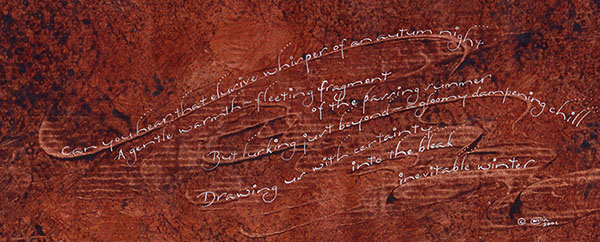 Can you hear that elusive whisper of an autumn night
A gentle warmth - fleeting fragment
of the passing summer
But lurking just beyond - a gloomy dampening chill...
Drawing us with certainty...
into the bleak...
inevitable winter
©
2001